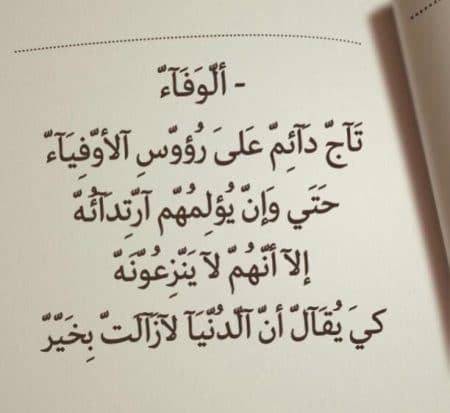 - ألّوَفَآءّ
تَآجّ دَآئِمّ عَلَىَ رُؤوّسِ آلأوّفِيَآءّ
حَتَي وَإنّ يُؤلِمُهّم آرّتِدآئُهّ
إلآ أنّهُمّ لآ يَنّزِعُوّنَهّ
كيَ يُقَآلّ أنّ آلّدُنّيَآ لآزَآلَتّ بِخَيّرّ